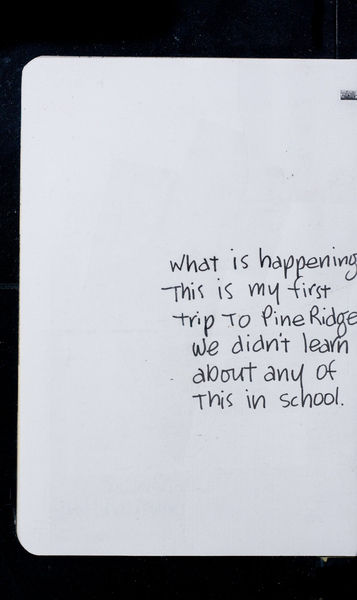 What is happening
This is my first
trip To Pine Ridge
We didn't learn
about any of
This in school.